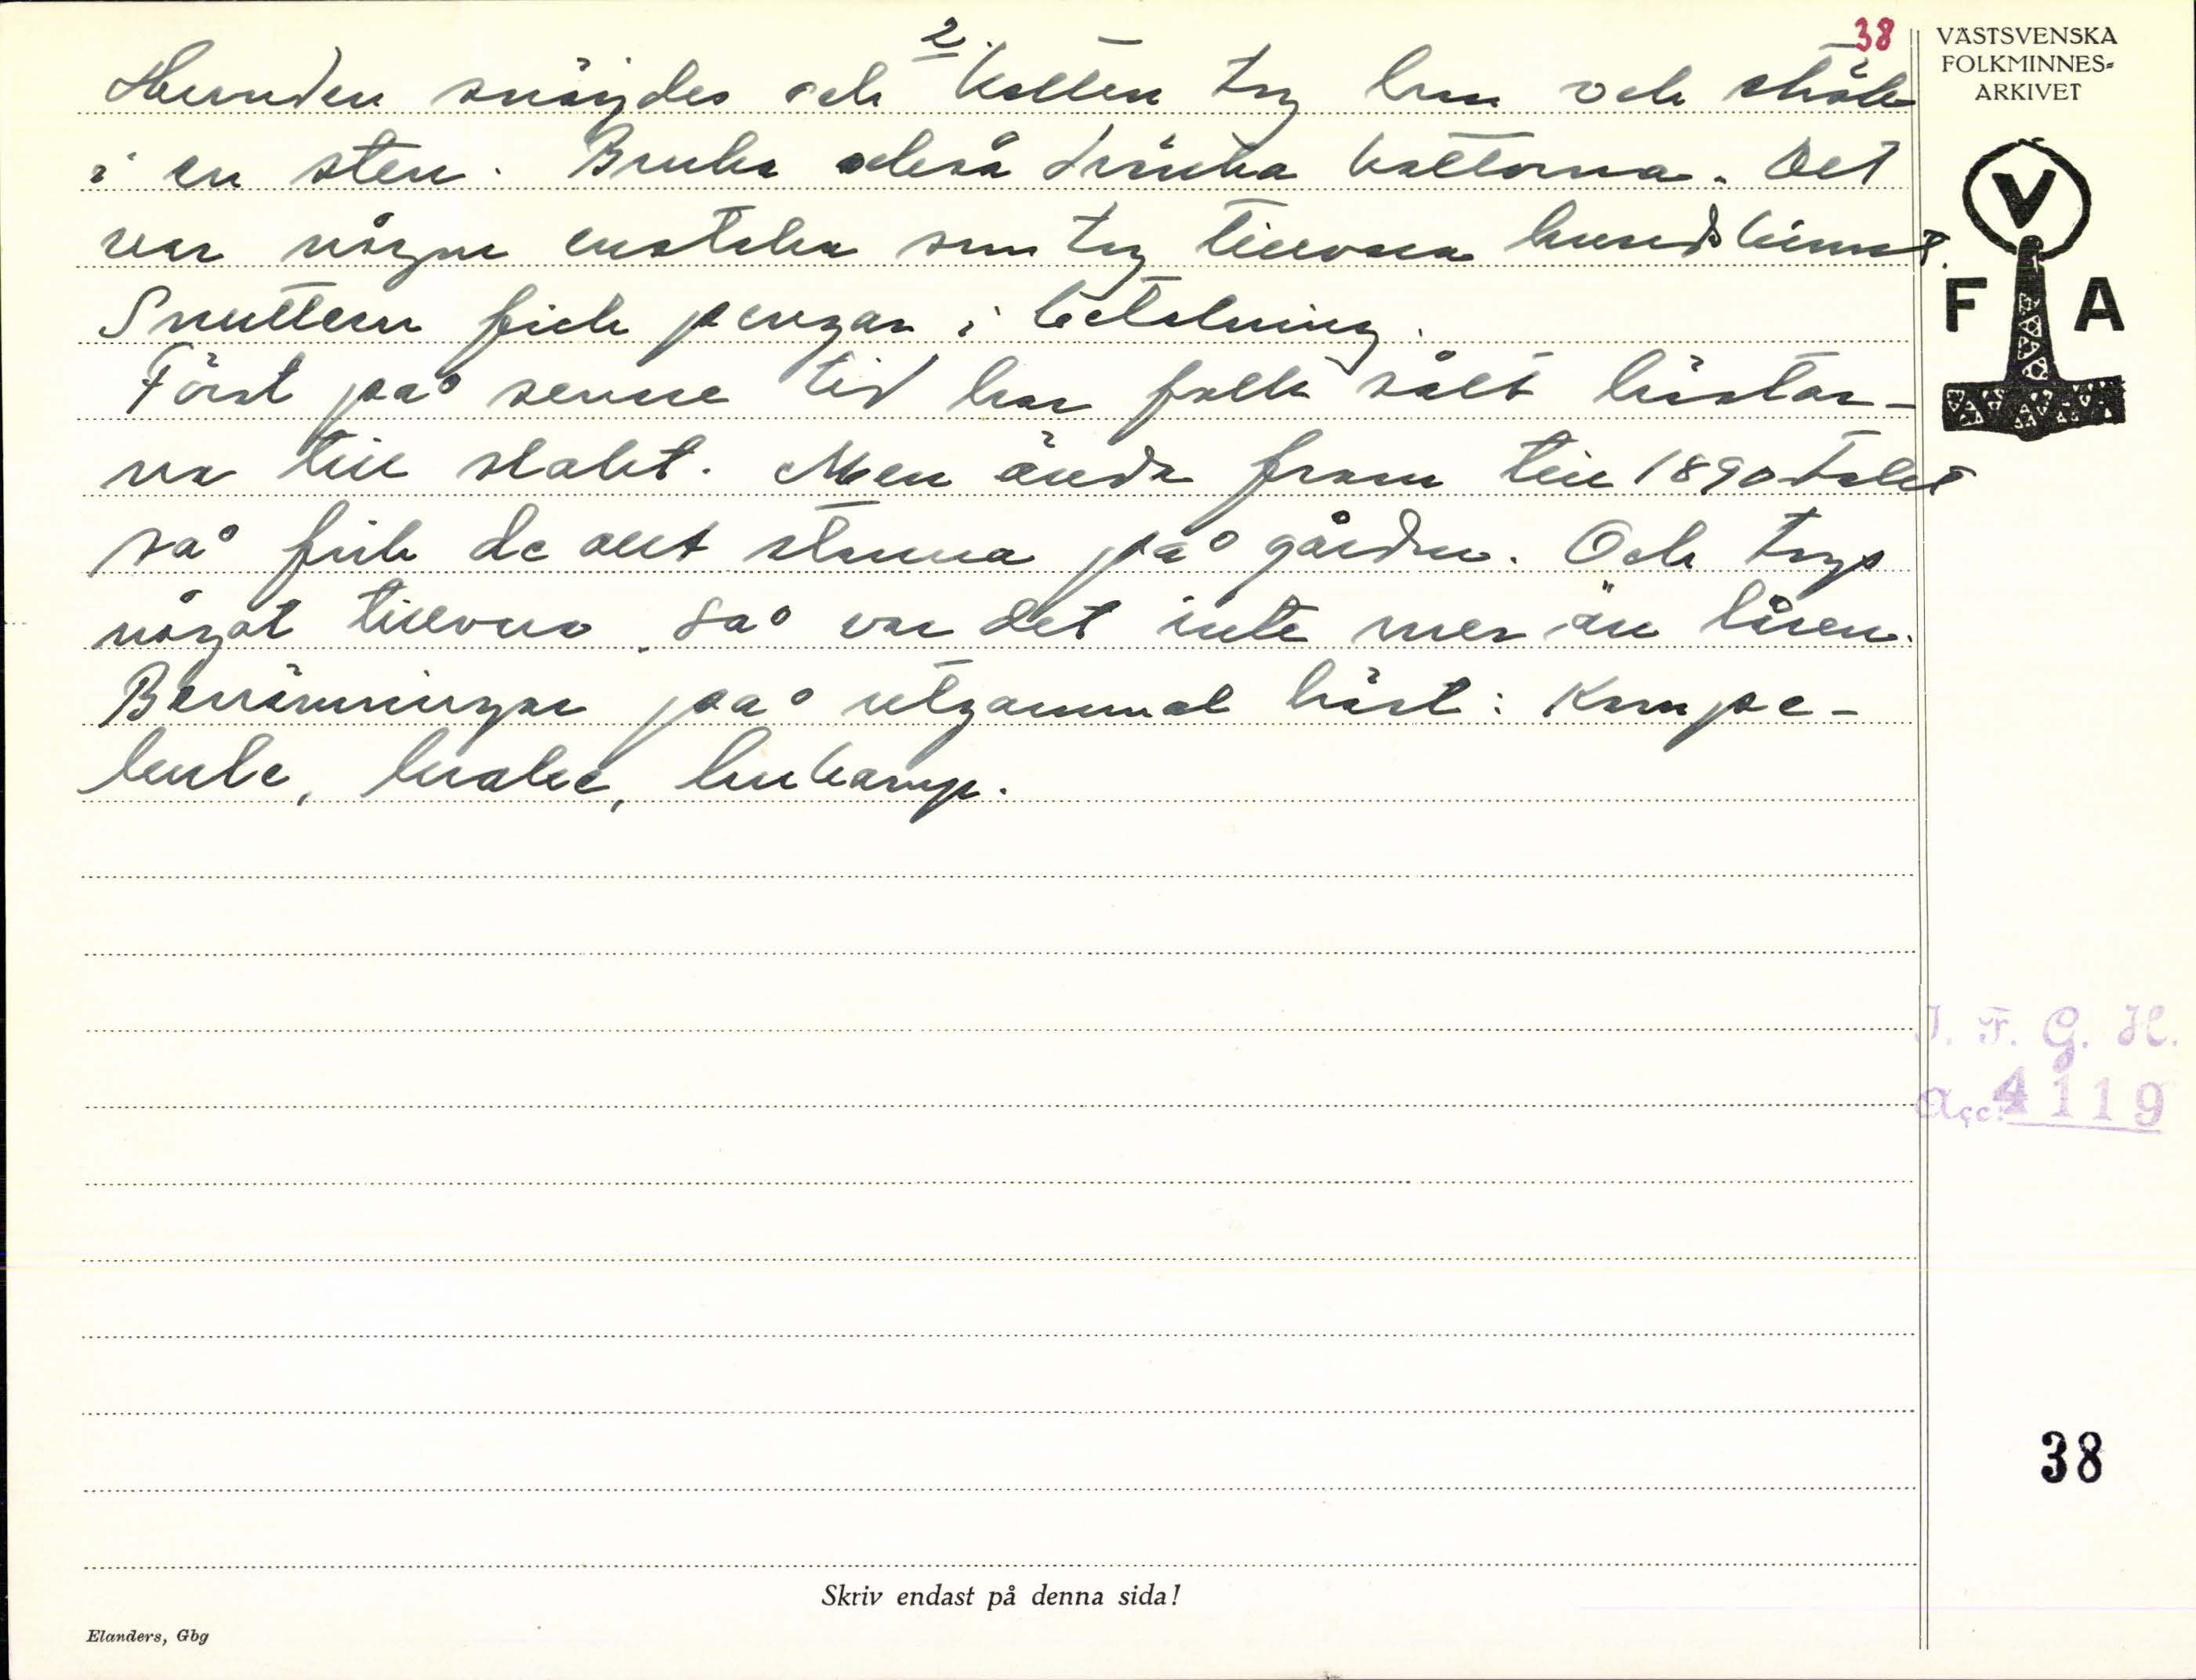 2.
38
Hunden snöjdes och katten tog han och slåck
i en sten. Bruka också dränka kattorna. Det
var några enstaka som tog tillvara hundskinnet.
Snutten fick pengar i betalning.
Först på senare tid har folk sålt hästar-
na till slakt. Men ända fram till 1890 talet
så fick de allt stanna på gården. Och togs
något tillvara så var det inte mer än håren.
Benämningar på utgammal häst: Kampe-
VÄSTSVENSKA
FOLKMINNES-
ARKIVET
V
F A
I. F. G. H.
acc. 4119
38
Skriv endast på denna sida!
Elanders, Gbg